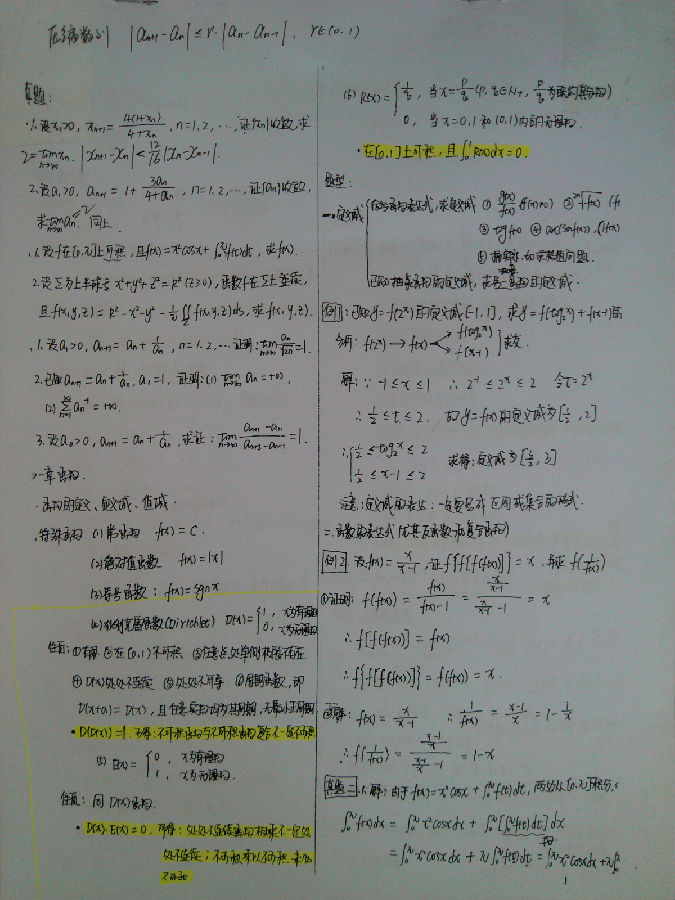 |aₙ₊₁ - aₙ| ≤ r·|aₙ - aₙ₋₁|, r∈(0,1)
真题:
1. 设x₁>0, xₙ₊₁ = 4(1+xₙ)/(4+xₙ), n=1,2,…, 证{xₙ}收敛, 求
|xₙ₊₁-xₙ| < 12/16 |xₙ-xₙ₋₁|.
2. 设a₁>0, aₙ₊₁ = 1 + 3aₙ/(4+aₙ), n=1,2,…, 证{aₙ}收敛,
求lim aₙ. 同上
1. 设f在[0,π]上可积, 且f(x)=x²cosx+∫₀^π f(t)dt, 求f(x).
2. 设Σ为上半球面 x²+y²+z²=R² (z≥0), 函数f在Σ上连续,
且f(x,y,z) = R²-x²-y²- ∬f(x,y,z)ds, 求f(x,y,z).
1. 设a₁>0, aₙ₊₁ = aₙ + 1/aₙ, n=1,2… 证明: lim aₙ/√2n =1.
2. 已知aₙ₊₁=aₙ+1/aₙ, a₁=1, 证明: (1) lim aₙ=+∞,
(2) Σ aₙ⁻¹ = +∞.
3. 设a₀>0, aₙ₊₁ = aₙ + 1/aₙ, 求证:
一章函数.
函数的定义, 定义域、值域.
特殊函数 (1) 常函数 f(x)=C.
(2) 绝对值函数 f(x)=|x|
(3) 符号函数: f(x)=sgnx
(4) 狄利克雷函数(Dirichlet) D(x)={1, x为有理数
0, x为无理数
性质: ①有界 ②在[0,1)不可积 ③任意点处单侧极限不存在
④D(x)处处不连续 ⑤处处不可导 ⑥周期函数, 即
D(x+a)=D(x), 且任意有理数均为其周期, 无最小正周期.
• D(D(x))=1. 可得: 不可积函数与不可积函数复合不一定不可积
(5) E(x)={0, x为有理数
1, x为无理数.
性质: 同D(x)函数.
• D(x)·E(x)=0. 可得: 处处不连续函数相乘不一定处
处不连续; 不可积乘以不可积
不可积
(6) R(x)={1/q, 当x=p/q (p,q∈N₊, p/q为既约真分数)
0, 当x=0,1和(0,1)内的无理数.
• 在[0,1]上可积, 且∫₀¹R(x)dx=0.
题型:
一、定义域 {在已知函数表达式, 求定义域 ① g(x)/f(x) (f(x)≠0) ② ²ⁿ√f(x)
③ tgf(x)
⑤ 如求根植问题.
已知抽象函数的定义域, 求另一函数的定义域.
例1: 已知y=f(2ˣ)的定义域[-1,1], 求y=f(log₂x)+f(x-1)的
分析: f(2ˣ)→f(x) f(log₂x) f(x-1) }求交.
解: ∵ -1≤x≤1 ∴ 2⁻¹≤2ˣ≤2 令t=2ˣ
∴ 1/2≤t≤2. 故y=f(x)的定义域为[1/2, 2]
∴{1/2≤log₂x≤2
1/2≤x-1≤2 求得: 定义域为
注意: 定义域的表达: 一定要写成区间或集合的形式.
二、函数的表达式(尤其反函数和复合函数)
例2. 设f(x)= x/(x-1), 证f{f[f(f(x))]}=x. 并求f(1/f(x))
①证明: f(f(x)) = f(x)/(f(x)-1) = (x/(x-1))/(x/(x-1)-1) = x
∴ f[f(f(x))] = f(x)
∴ f{f[f(f(x))]} = f(f(x)) = x.
②解: f(x)= x/(x-1) ∴ 1/f(x) = (x-1)/x = 1-1/x
∴ f(1/f(x)) = ((x-1)/x)/((x-1)/x -1) = 1-x
真题二.1.解: 由于f(x)=x²cosx+∫₀^π f(t)dt, 两边从[0,π]积分,
∫₀^π f(x)dx = ∫₀^π x²cosxdx + ∫₀^π[∫₀^π f(t)dt]dx
= ∫₀^π x²cosxdx + π∫₀^π f(t)dt = ∫₀^π x²cosxdx + π∫₀^π